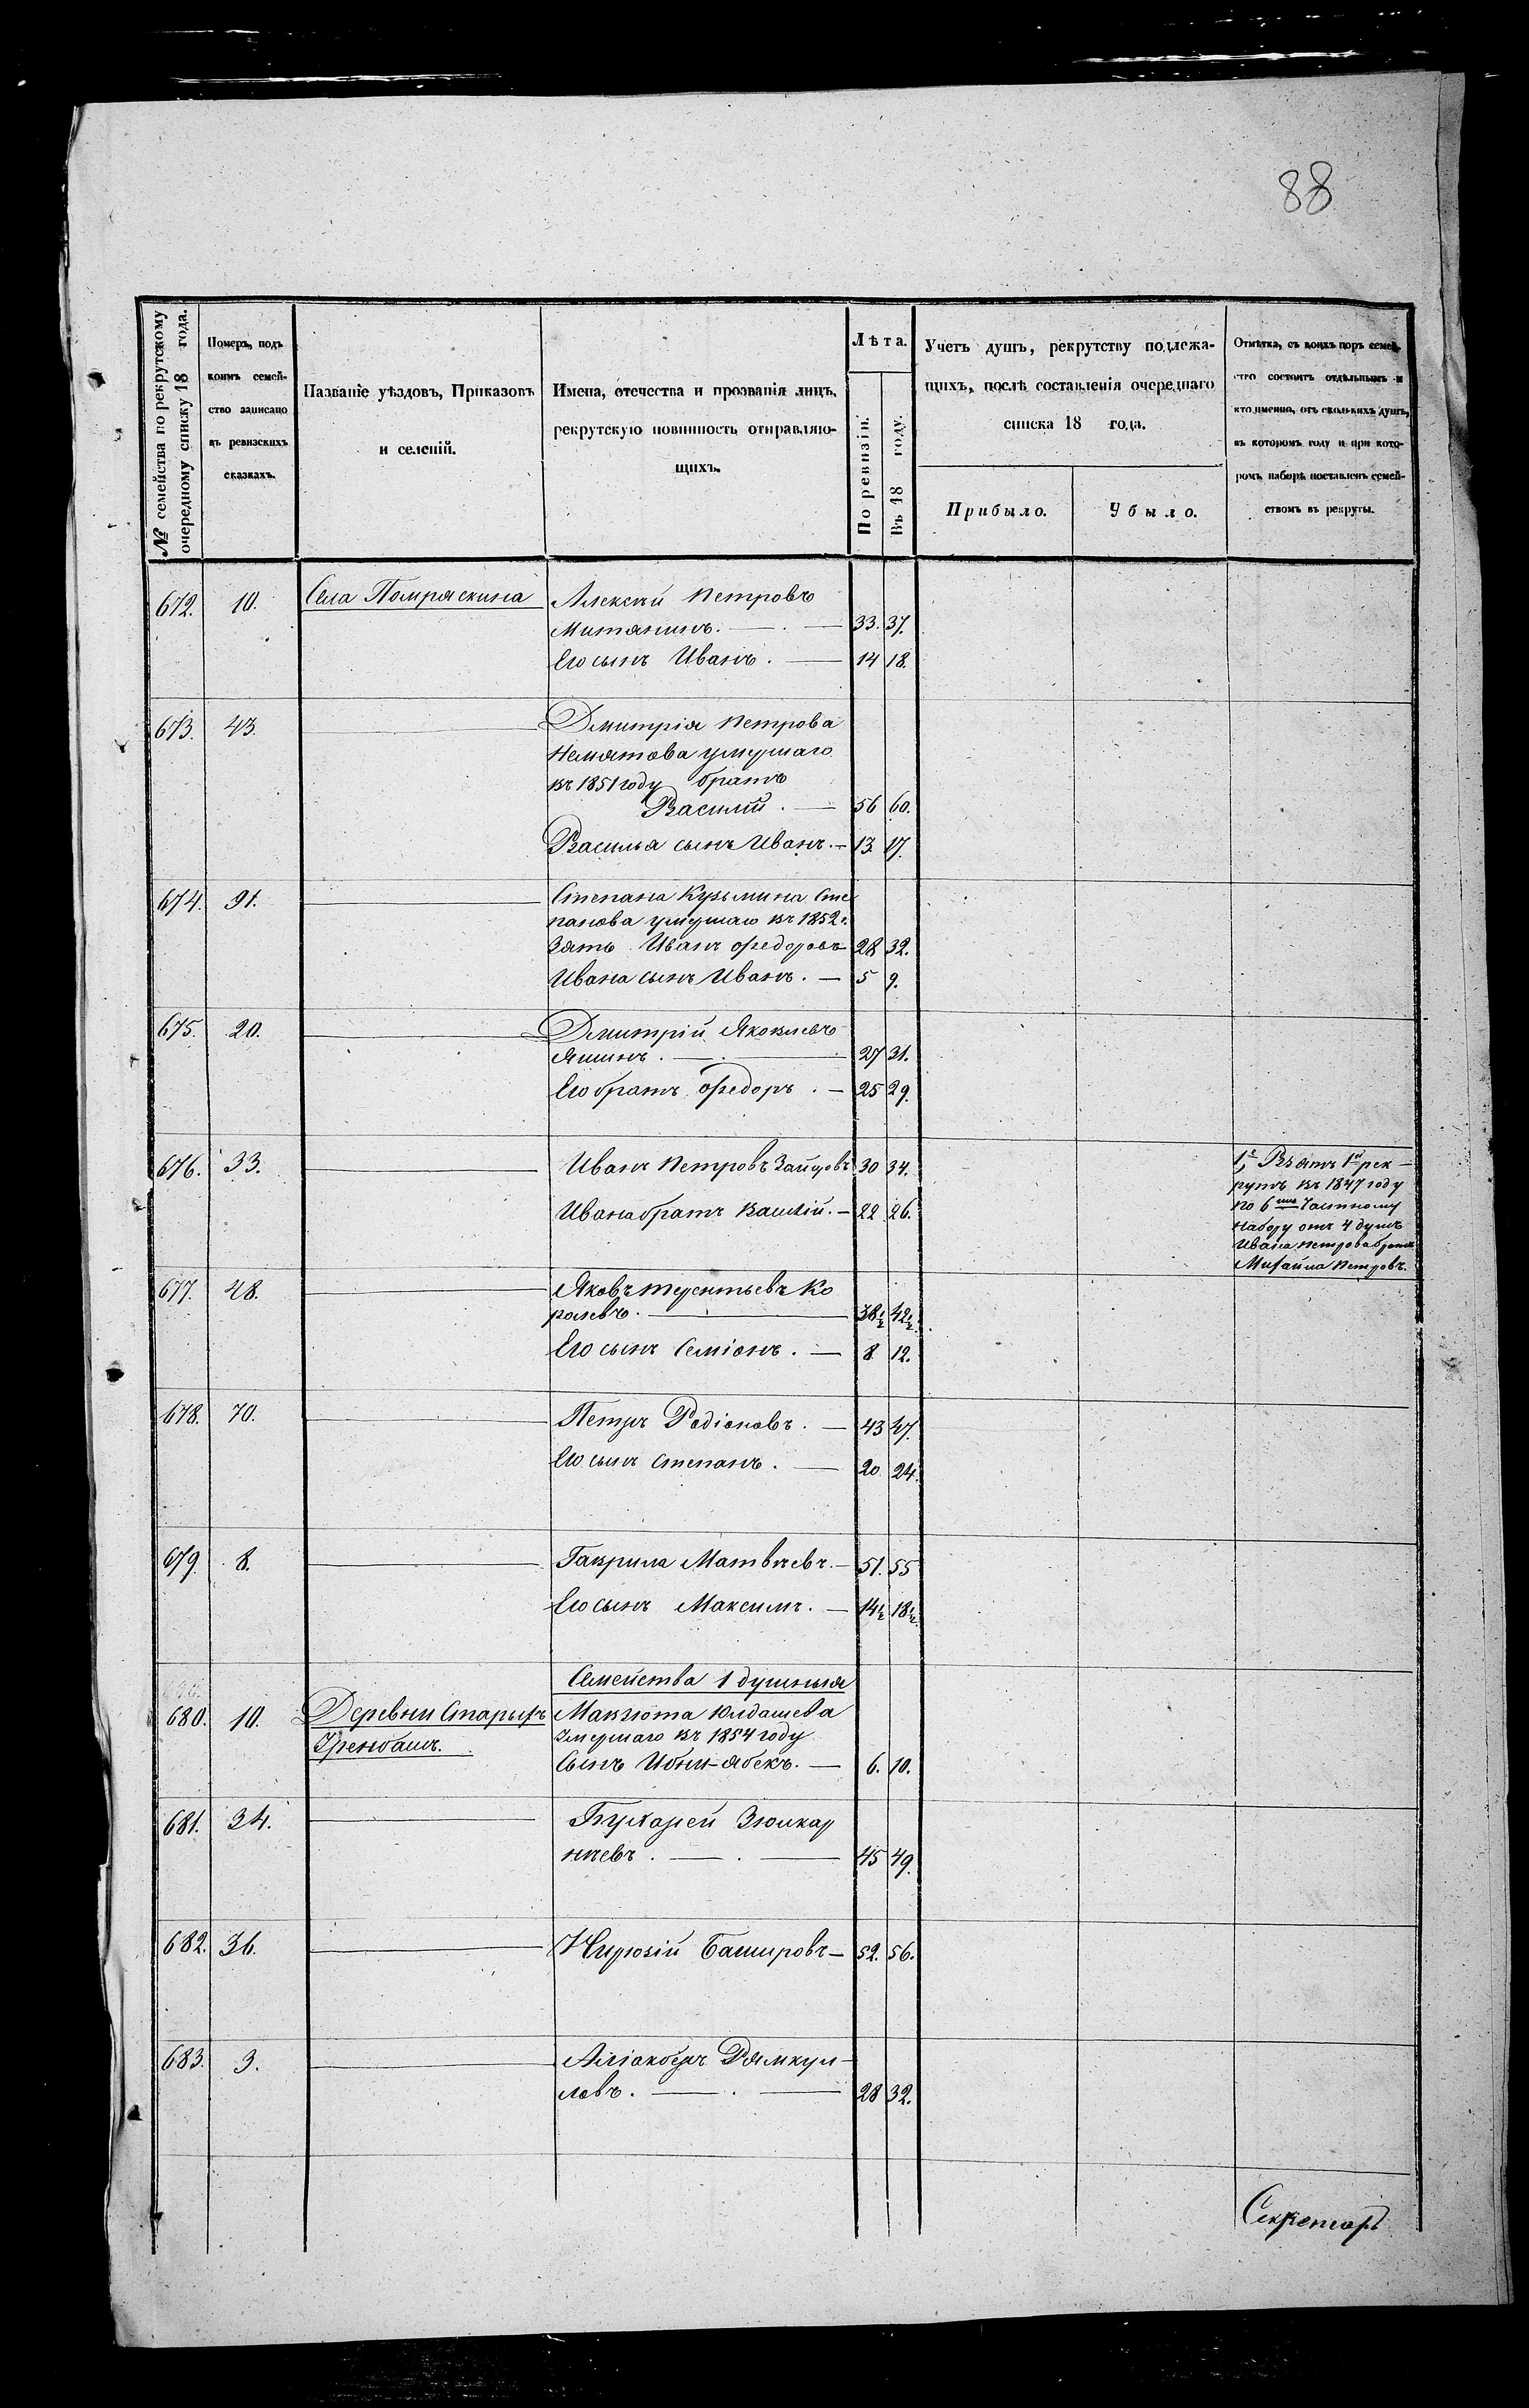 88
№ семейства по рекрутскому очередному списку 18 года.
Номеръ, подъ коимъ семейство записано въ ревизскихъ сказкахъ.
Названіе уѣздовъ, Приказовъ и селеній.
Имена, отечества и прозванія лицъ, рекрутскую повинность отправляющихъ.
Лѣта.
По ревизіи.
Въ 18 году.
Учетъ душъ, рекрутству подлежащихъ, послѣ составленія очереднаго списка 18 года.
Прибыло.
Убыло.
Отмѣтка, съ коихъ поръ семейство состоитъ отдѣльнымъ и кто именно, отъ сколькихъ душъ, въ которомъ году и при которомъ наборѣ поставленъ семействомъ въ рекруты.
672. 10. Села Помряскина Алексѣй Петровъ
Митянинъ. 33. 37.
Его сынъ Иванъ. 14 18.
673. 43. Дмитрія Петрова
Немятова умершаго
въ 1851 году братъ
Василій. 56 60.
Василья сынъ Иванъ. 13 17.
674. 91. Степана Кузьмина Сте
панова умершаго въ 1852 г.
Зять Иванъ Ѳедоровъ 28 32.
Ивана сынъ Иванъ. 5 9.
675. 20. Дмитрій Яковлевъ
Яшинъ. 27 31.
Его братъ Ѳедоръ. 25 29.
676. 33. Иванъ Петровъ Зайцовъ 30 34.
Ивана братъ Василій. 22 26.
1, Взятъ 1й рек
рутъ въ 1847 году
по 6 Частному
набору отъ 4 душъ
Ивана Петрова братъ
Михайла Петровъ.
677. 48. Яковъ Терентьевъ Ко
ролевъ. 38½ 42½
Его сынъ Семіонъ. 8 12.
678. 70. Петръ Родіоновъ. 43 47.
Его сынъ Степанъ. 20 24.
679. 8. Гаврила Матвѣевъ. 51. 55
Его сынъ Максимъ. 14½ 18½
Семейства 1 душныя
680. 10. Деревни Старыхъ Макзюта Юлдашева
Уренбашъ. Умершаго въ 1854 году
Сынъ Ибни-ябекъ. 6. 10.
681. 34. Бухарей Зюлкар
нѣевъ. 45 49.
682. 36. Башировъ 52. 56.
683. 3. Аліакберъ Рямкул-
ловъ. 28 32.
Секретарь